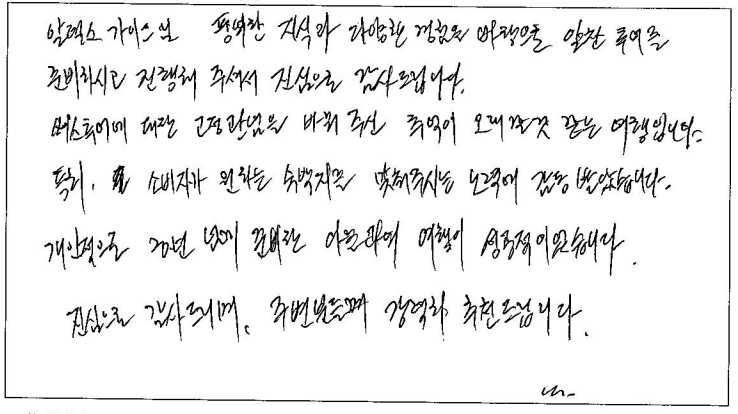 알렉스 가이드님 풍부한 지식과 다양한 경험을 바탕으로 알찬 투어를
준비하시고 진행해 주셔서 진심으로 감사드립니다.
대한 고정관념을 바꿔 주신 추억이 오래 갈것 같은 여행입니다.
특히, 소비자가 원하는 맞춰주시는 노력에 감동 받았습니다.
개인적으로 20년 넘게 준비한 여행이 성공적이었습니다.
진심으로 감사드리며, 주변분들께 강력히 추천드립니다.